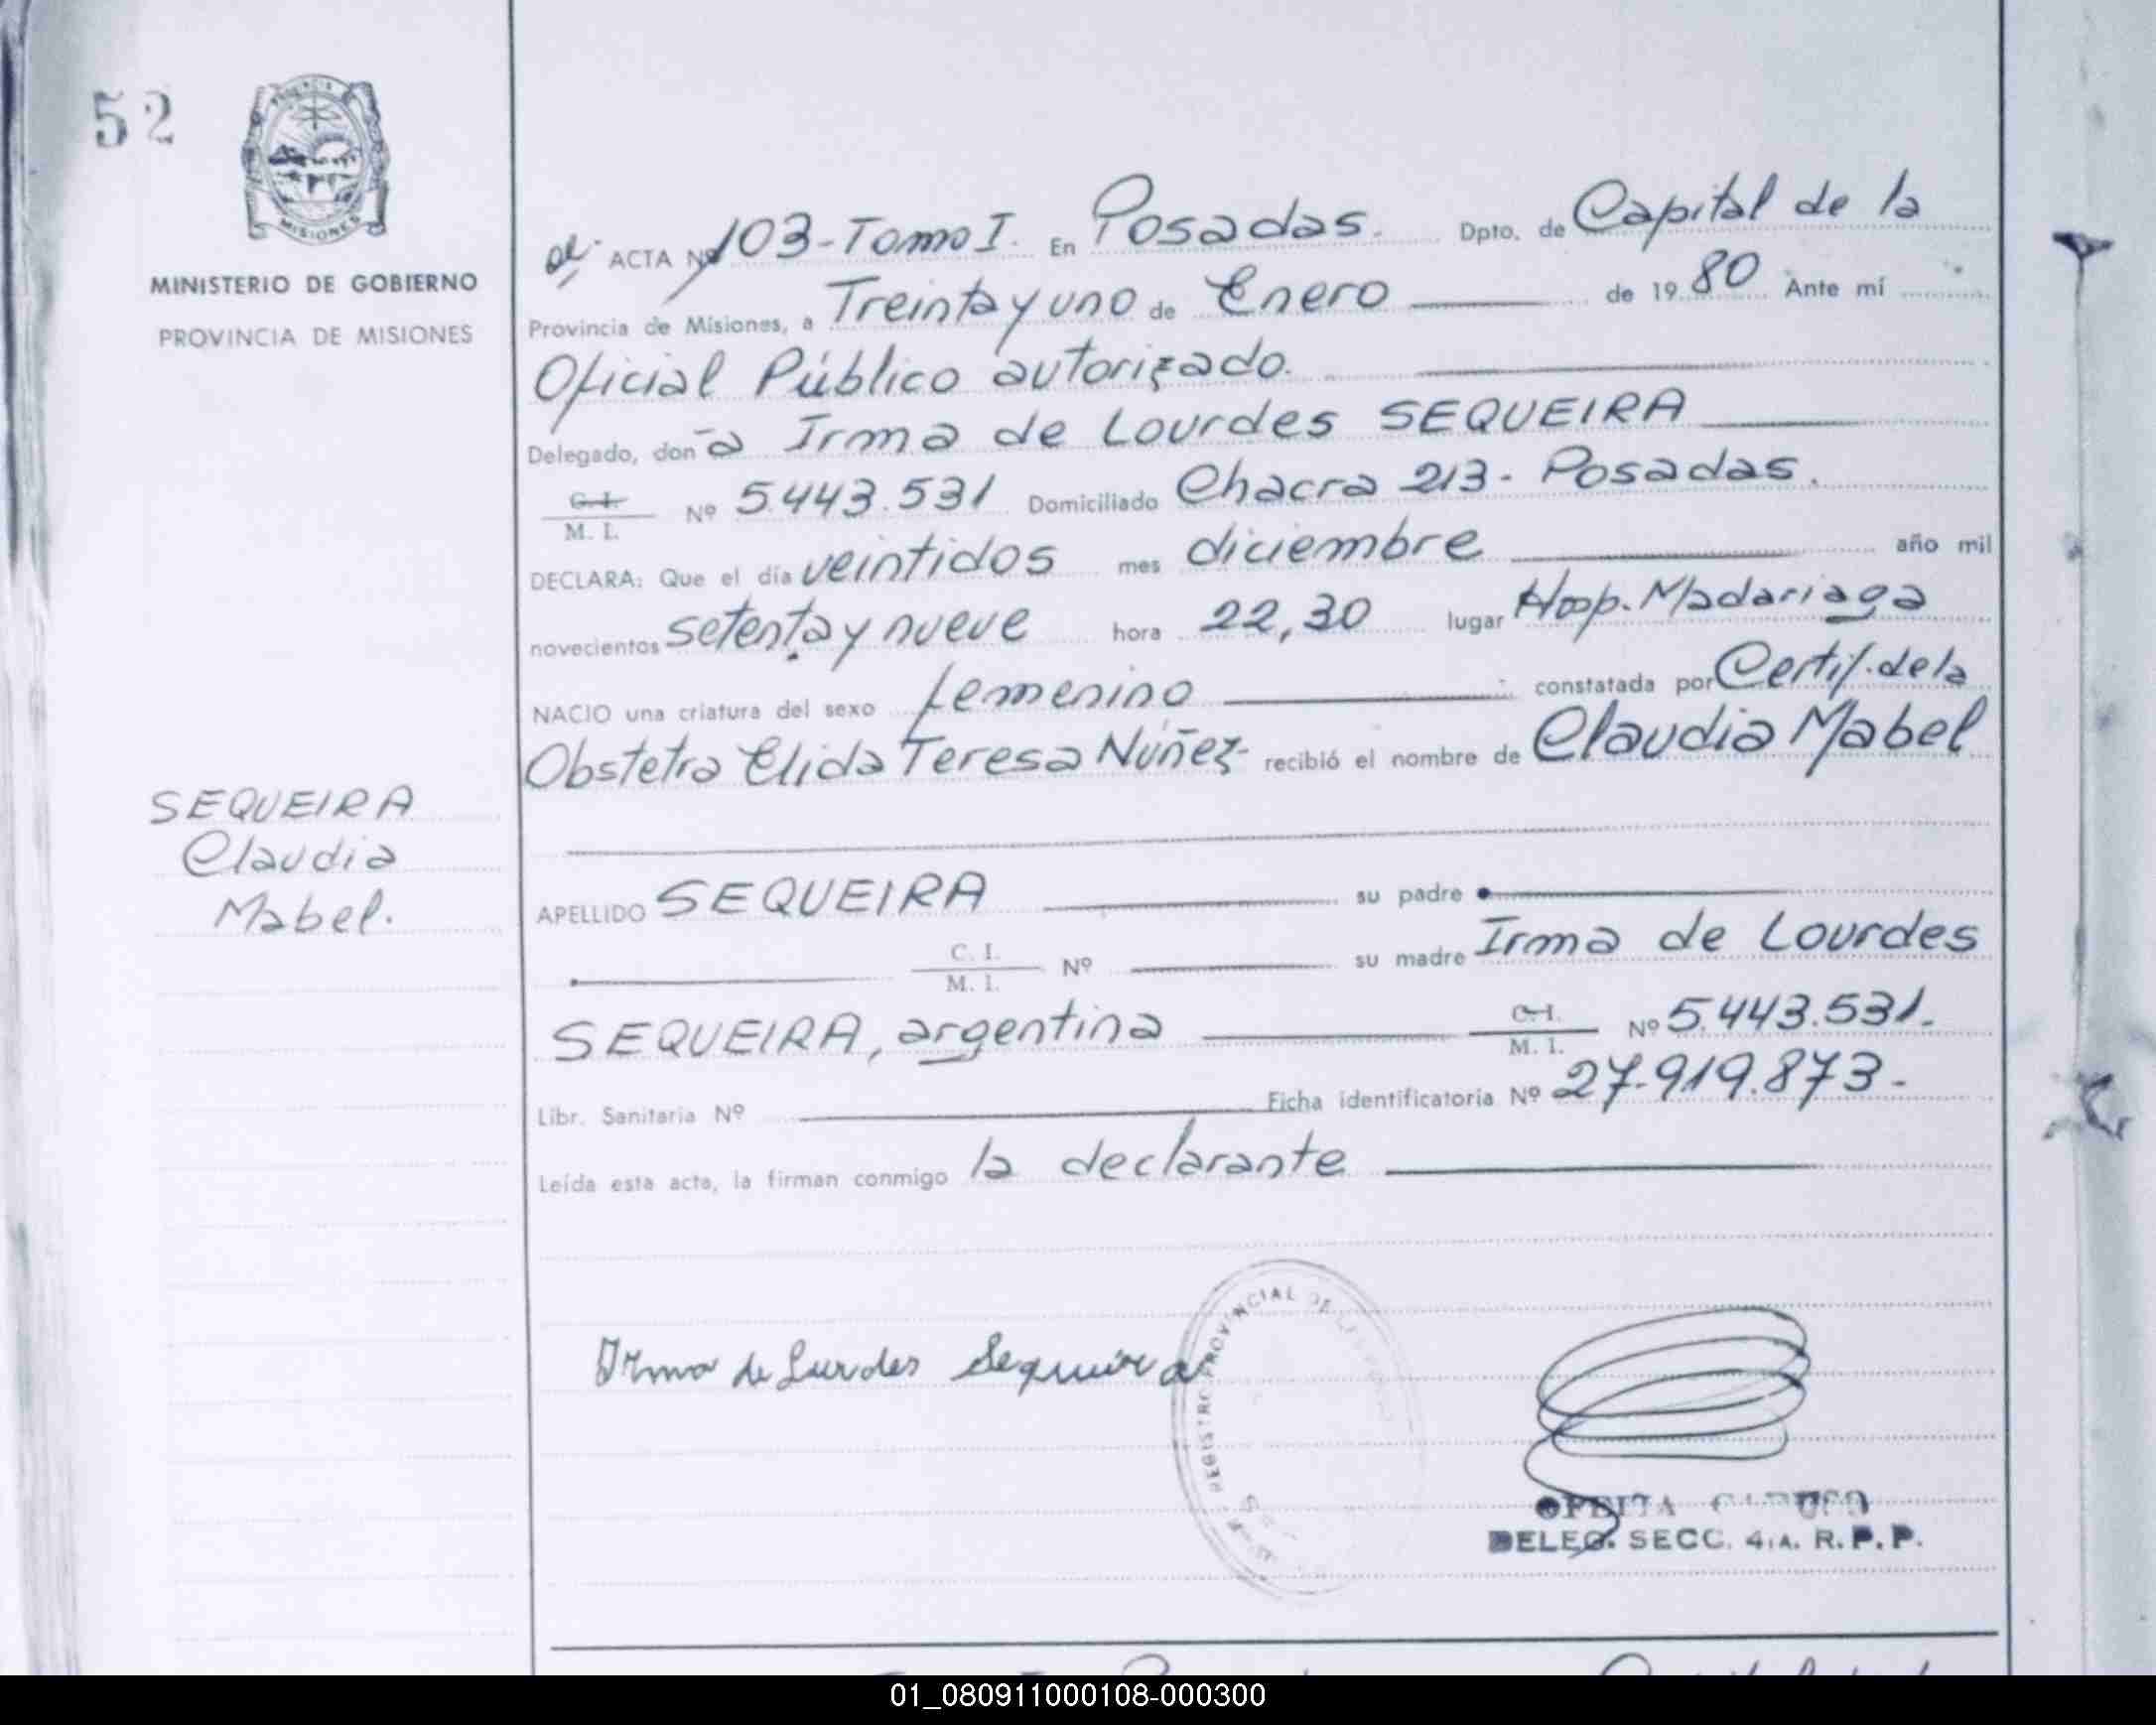 52
MISIONES
MINISTERIO DE GOBIERNO
PROVINCIA DE MISIONES
ACTA Nº 103-Tomo I. En Posadas. Dpto. de Capital de la
Provincia de Misiones, a Treinta y uno de Enero de 1980 Ante mí
Oficial Público autorizado.
Delegado, doña Irma de Lourdes SEQUEIRA
C. I.
M. I.
Nº 5.443.531 Domiciliado Chacra 213- Posadas.
DECLARA: Que el día veintidos mes diciembre año mil
novecientos setenta y nueve hora 22,30 lugar Hosp. Madariaga
NACIO una criatura del sexo femenino constatada por Certif. de la
Obstetra Elida Teresa Núñez- recibió el nombre de Claudia Mabel
SEQUEIRA
Claudia
Mabel.
APELLIDO SEQUEIRA su padre
C. I.
M. I.
Nº su madre Irma de Lourdes
SEQUEIRA, argentina C. I.
M. I.
Nº 5.443.531.
Libr. Sanitaria Nº Ficha identificatoria Nº 27.919.873-
Leída esta acta, la firman conmigo la declarante
Irma de Lurdes Sequeira
REGISTRO PROVINCIAL DE
DELEG. SECC. 4.A. R.P.P.
01_080911000108-000300